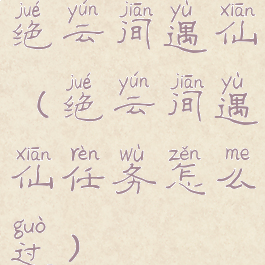 jué yún jiān yù xiān
绝云间遇仙
jué yún jiān yù
（绝云间遇
xiān rèn wù zěn me
仙任务怎么
guò
过）